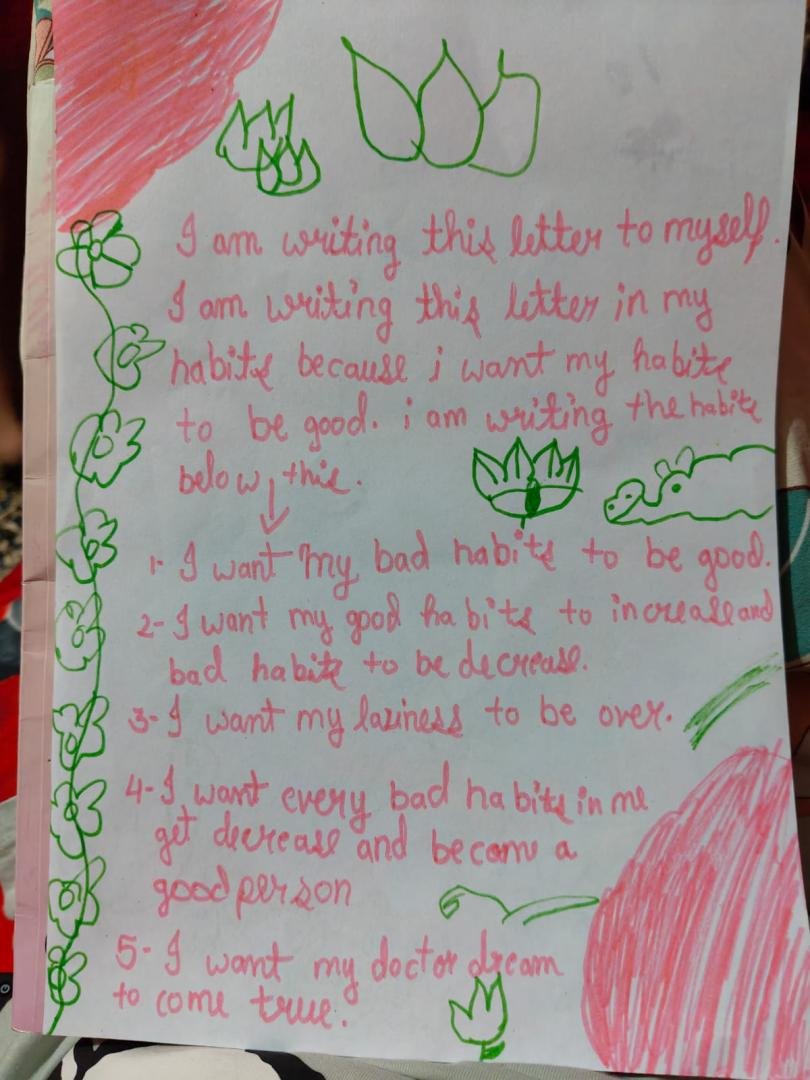 I am writing this letter to myself.
I am writing this letter in my
habits because i want my habits
to be good. i am writing the habits
below this.
1- I want my bad habits to be good.
2- I want my good habits to increase and
bad habits to be decrease.
3- I want my laziness to be over.
4- I want every bad habits in me
get decrease and become a
good person
5- I want my doctor dream
to come true.